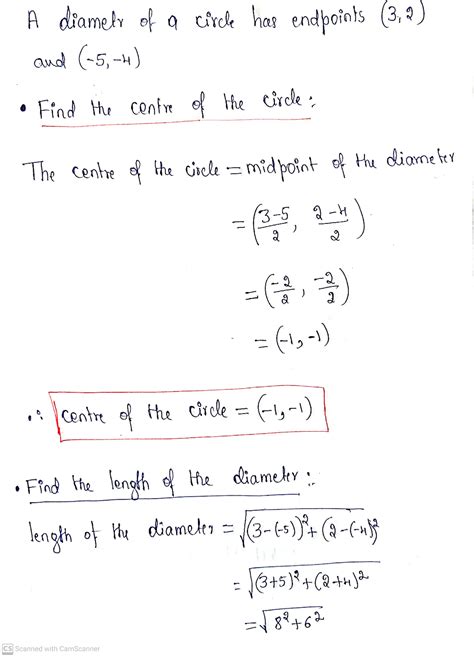 A diametr of a circle has endpoints (3,2)
and (-5,-4)
• Find the centre of the circle :.
The centre of the circle = midpoint of the diameter
= (3-5/2, 2-4/2)
= (-2/2, -2/2)
= (-1,-1)
∴ centre of the circle = (-1,-1)
• Find the length of the diameter :.
length of the diameter = √(3-(-5))²+(2-(-4))²
= √(3+5)²+(2+4)²
= √8²+6²
CS Scanned with CamScanner